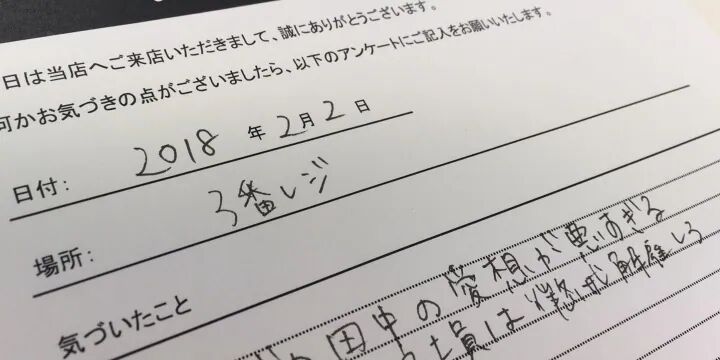 日は当店へご来店いただきまして、誠にありがとうございます。
何かお気づきの点がございましたら、以下のアンケートにご記入をお願いいたします。
日付: 2018 年 2 月 2 日
場所: 3番レジ
気づいたこと
田中の愛想が悪すぎる
員は懲戒解雇しろ